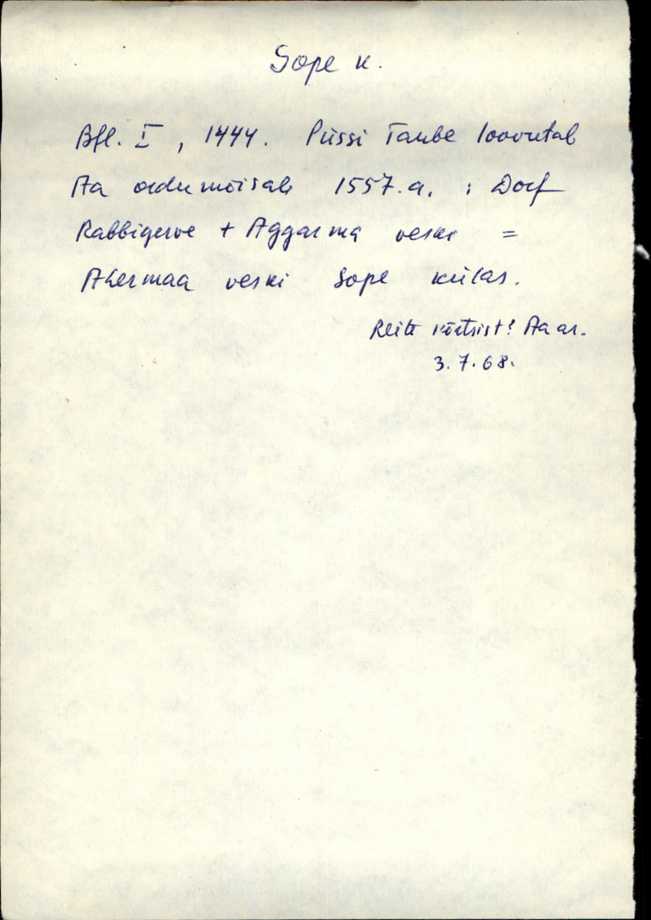 Sope k.
Bfl. I, 1444. Püssi Taube loovutab
Aa ordumõisale 1557.a. : Dorf
Rabbigerwe + Aggarma veski =
Ahermaa veski Sope külas.
Aa as.
3.7.68.